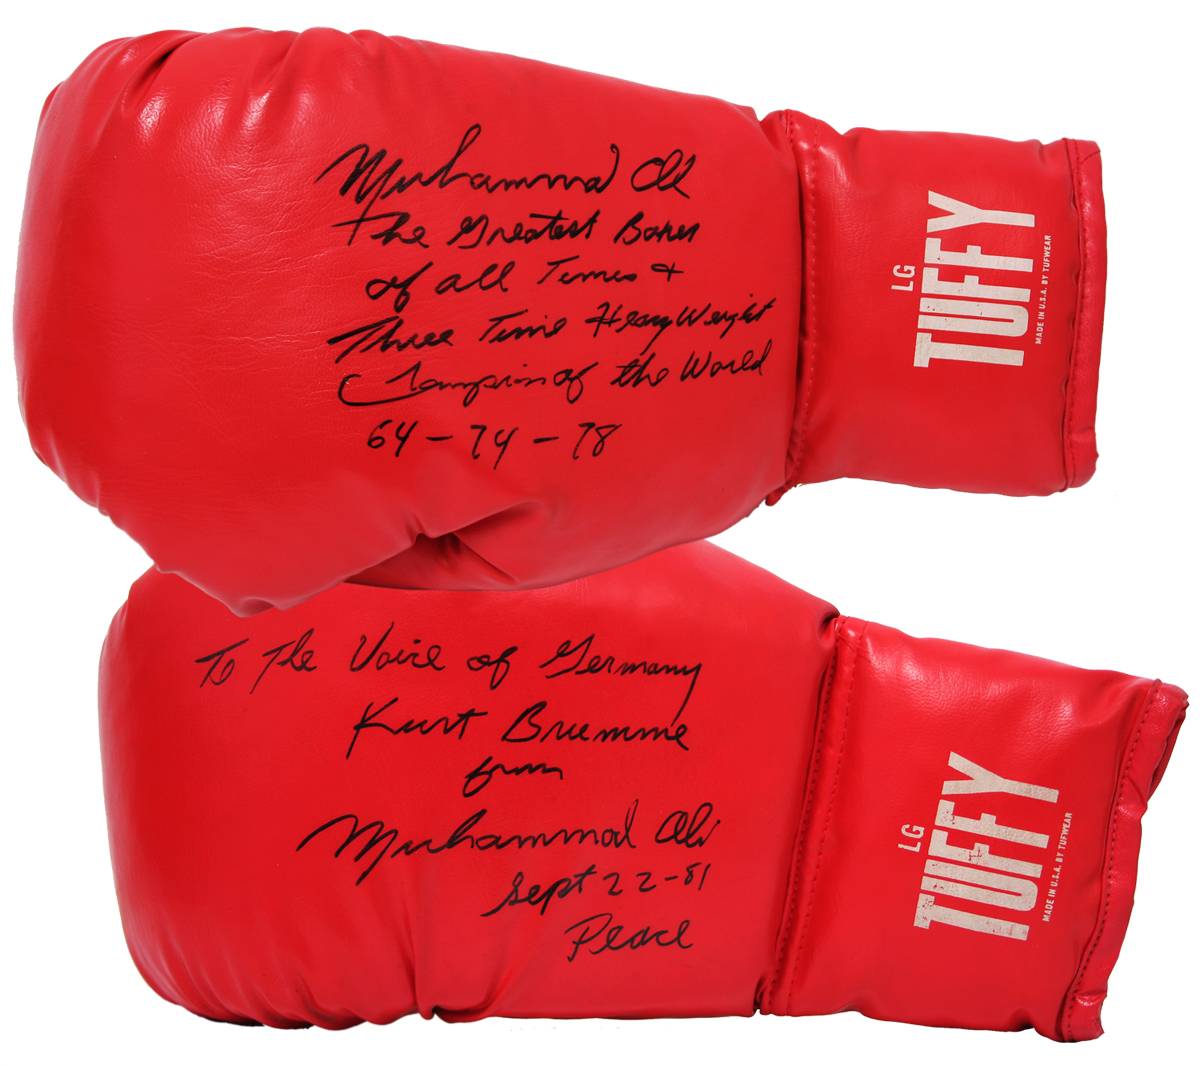 Muhammad Ali
The Greatest Boxer
of all Times +
Three Time HeavyWeight
Champion of the World
64-74-78
LG
TUFFY
MADE IN U.S.A. BY TUFWEAR
To The Voice of Germany
Kurt Brumme
from
Muhammad Ali
Sept 22-81
Peace
LG
TUFFY
MADE IN U.S.A. BY TUFWEAR